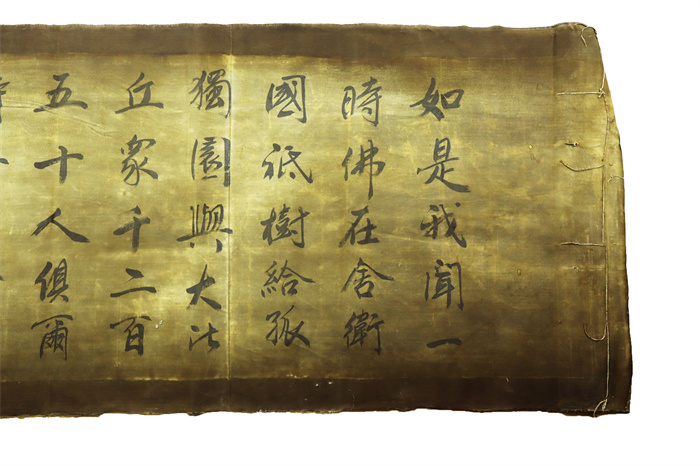 如是我聞一
時佛在舍衛
國祇樹給孤
獨園與大比
丘衆千二百
五十人俱爾